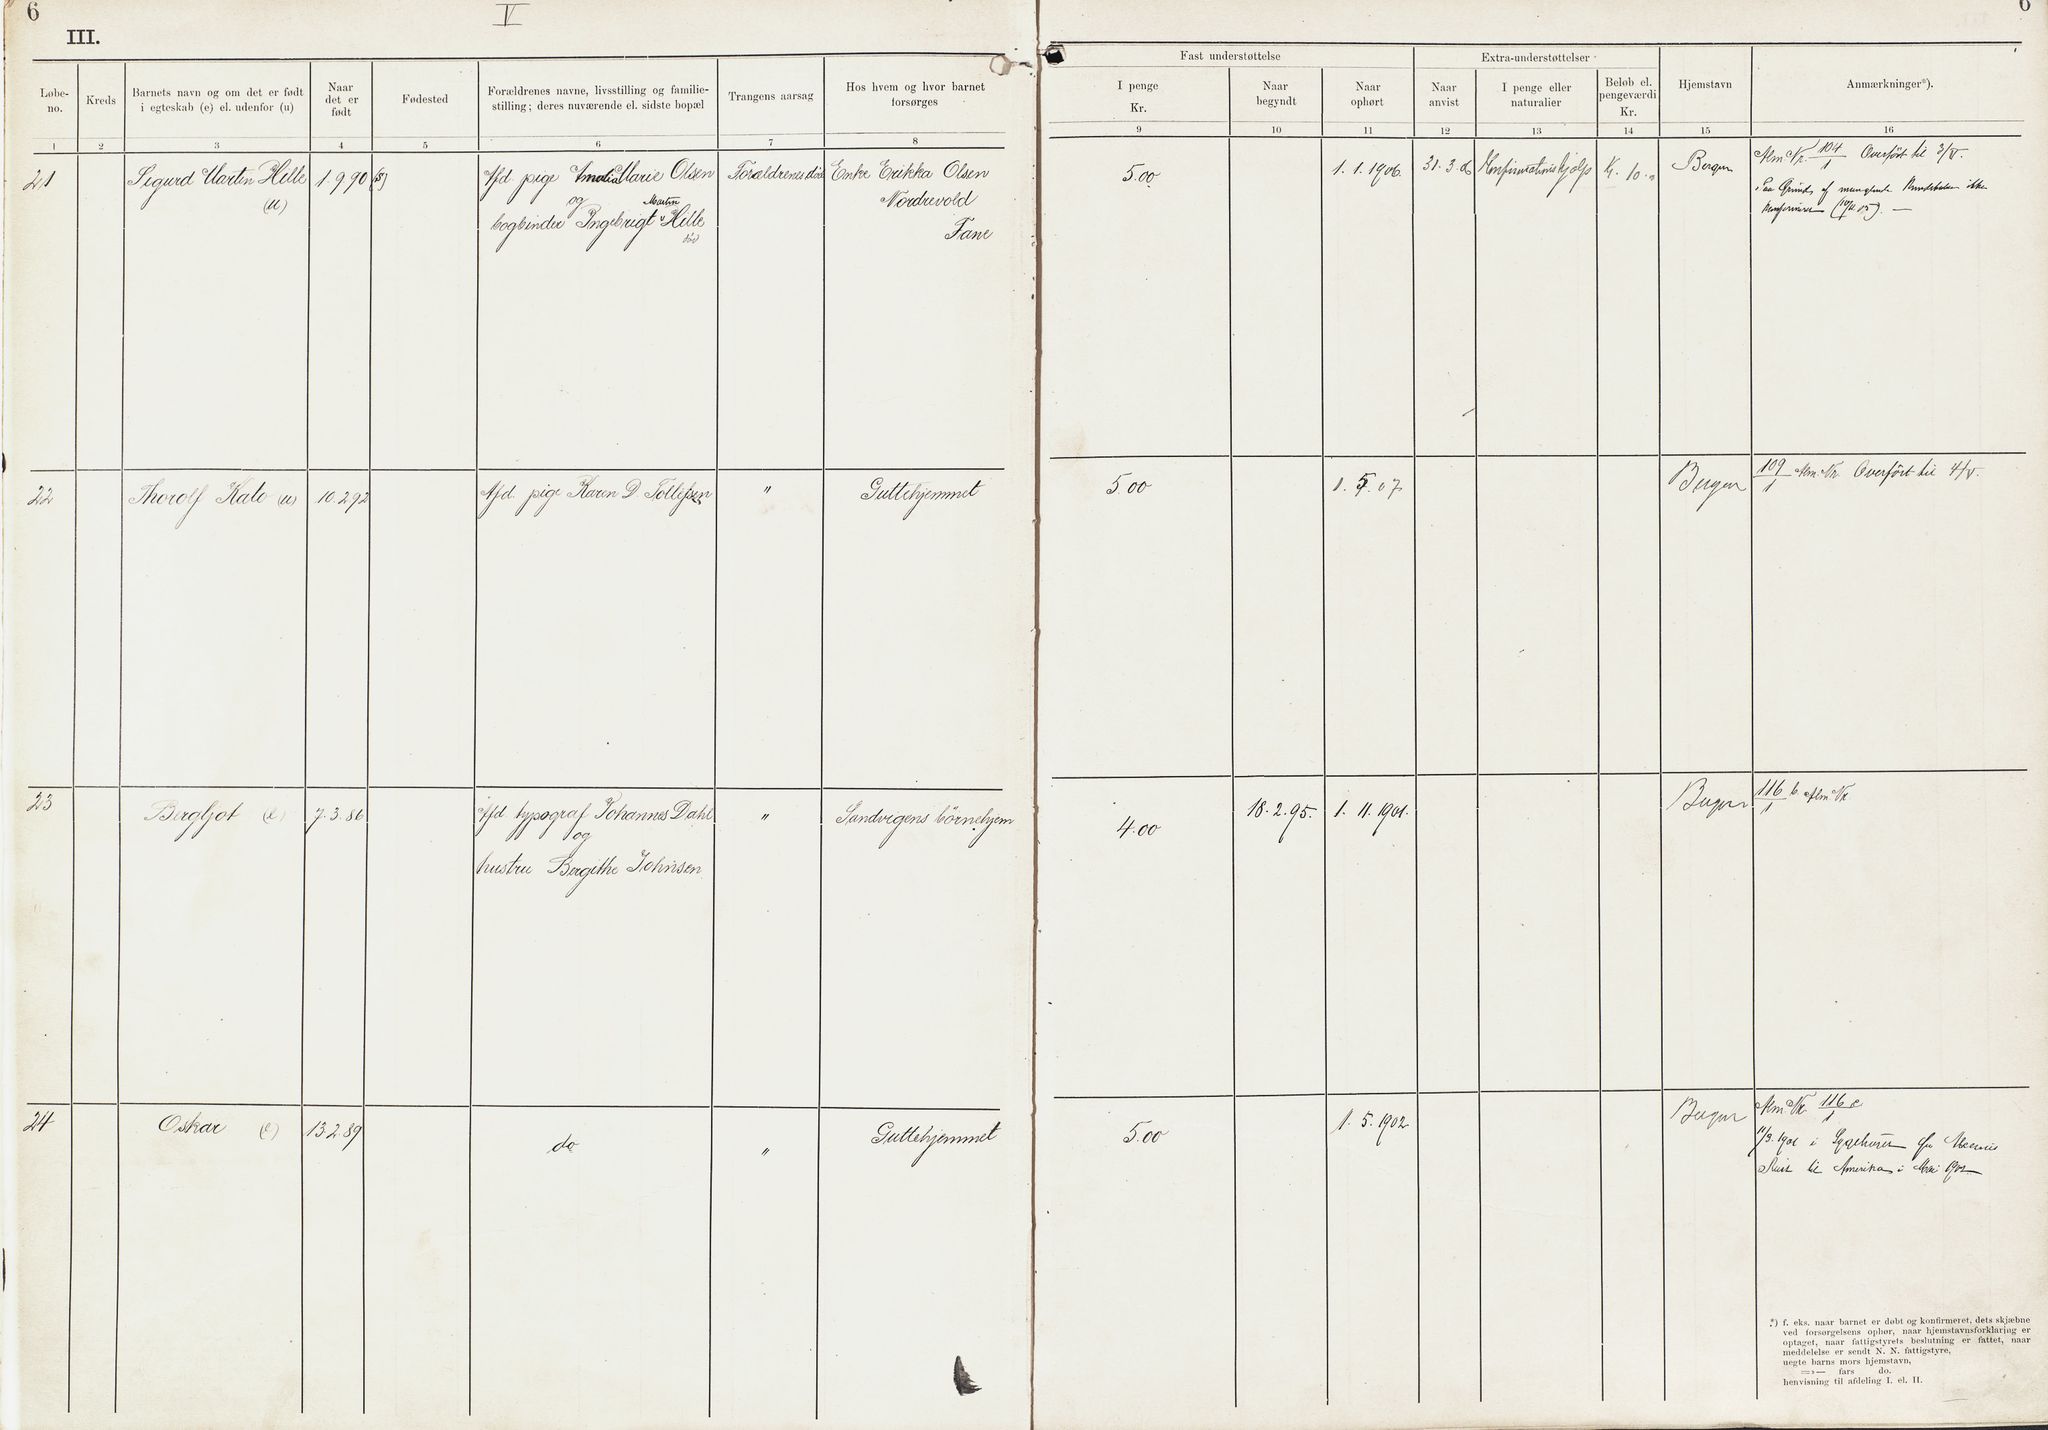 6
V
6
III.
Løbe-
no.
Kreds
Barnets navn og om det er født
i egteskab (e) el. udenfor (u)
Naar
det er
født
Fødested
Forældrenes navne, livsstilling og familie-
stilling; deres nuværende el. sidste bopæl
Trangens aarsag
Hos hvem og hvor barnet
forsørges
Fast understøttelse
I penge
Kr.
Naar
begyndt
Naar
ophørt
Extra-understøttelser
Naar
anvist
I penge eller
naturalier
Beløb el.
pengeværdi
Kr.
Hjemstavn
Anmærkninger*).
1 2 3 4 5 6 7 8 9 10 11 12 13 14 15 16
21
Sigurd Martin Helle
(u)
1.9.90 (15)
Afd. pige Amalia Marie Olsen
og
bogbinder Ingebrigt Martin Helle
død
Forældrenes død
Enke Erikka Olsen
Nordrevold
Fane
5.00
1.1.1906.
31.3.06
Konfirmationshjælp
Kr. 10.
Bergen
Alm. Nr. 104/1 Overført til 3/V.
Paa Grund af manglende Kundskaber ikke
konfirmeret
22
Thorolf Kato (u)
10.2.92
Afd. pige Karen D. Tollefsen
"
Guttehjemmet
5.00
1. 5. 07
Bergen
109/1 Alm. Nr. Overført til 4/V.
23
Bergljot (e)
7.3.86
Afd. typograf Johannes Dahl
og
hustru Bergithe Johnsen
"
Sandvigens børnehjem
4.00
18.2.95.
1. 11. 1901.
Bergen
116/1 b. Alm. Nr.
24
Oskar (e)
13.2.89
do
"
Guttehjemmet
5.00
1. 5. 1902
Bergen
Alm. Nr. 116/1 c
11/9.1901 i Sygehuset
Reist til Amerika i Mai 1902
*) f. eks. naar barnet er døbt og konfirmeret, dets skjæbne
ved forsørgelsens ophør, naar hjemstavnsforklaring er
optaget, naar fattigstyrets beslutning er fattet, naar
meddelelse er sendt N. N. fattigstyre,
uegte barns mors hjemstavn,
—»— fars do.
henvisning til afdeling I. el. II.